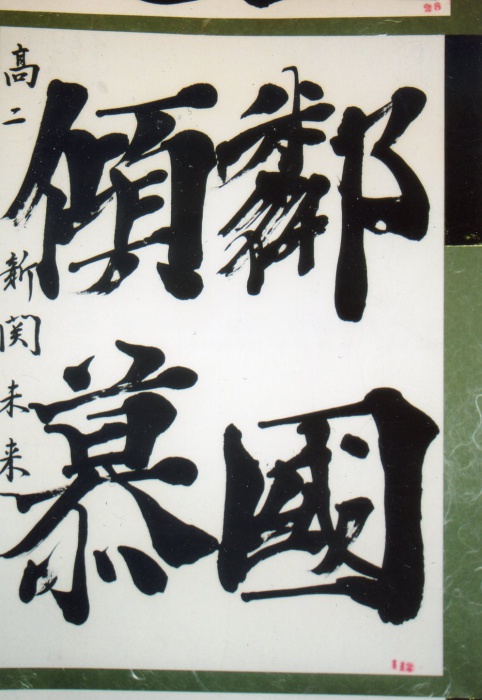 鄰國
傾慕
高二 新関未来
28
112